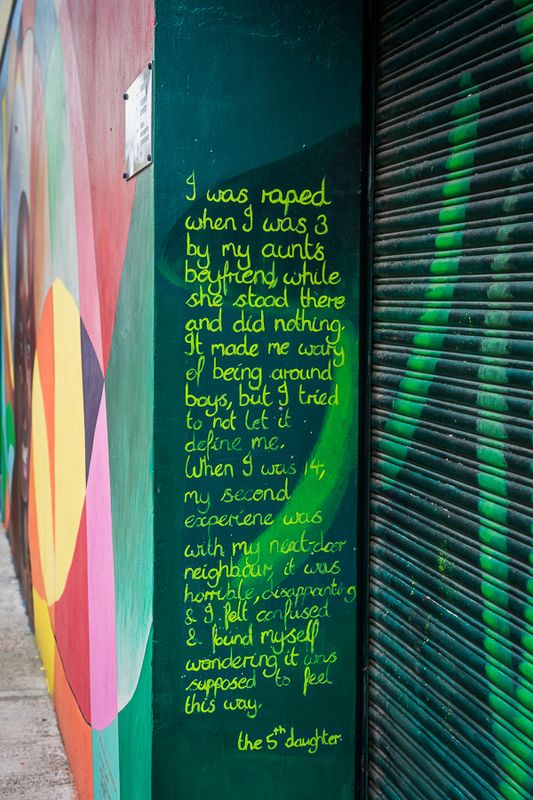 I was raped
when I was 3
by my aunt's
boyfriend, while
she stood there
and did nothing.
It made me wary
of being around
boys, but I tried
to not let it
define me.
When I was 14,
my second
experiene was
with my next-door
neighbour, it was
horrible, disappointing
& I felt confused
& found myself
wondering it was
supposed to feel
this way.
the 5th daughter.